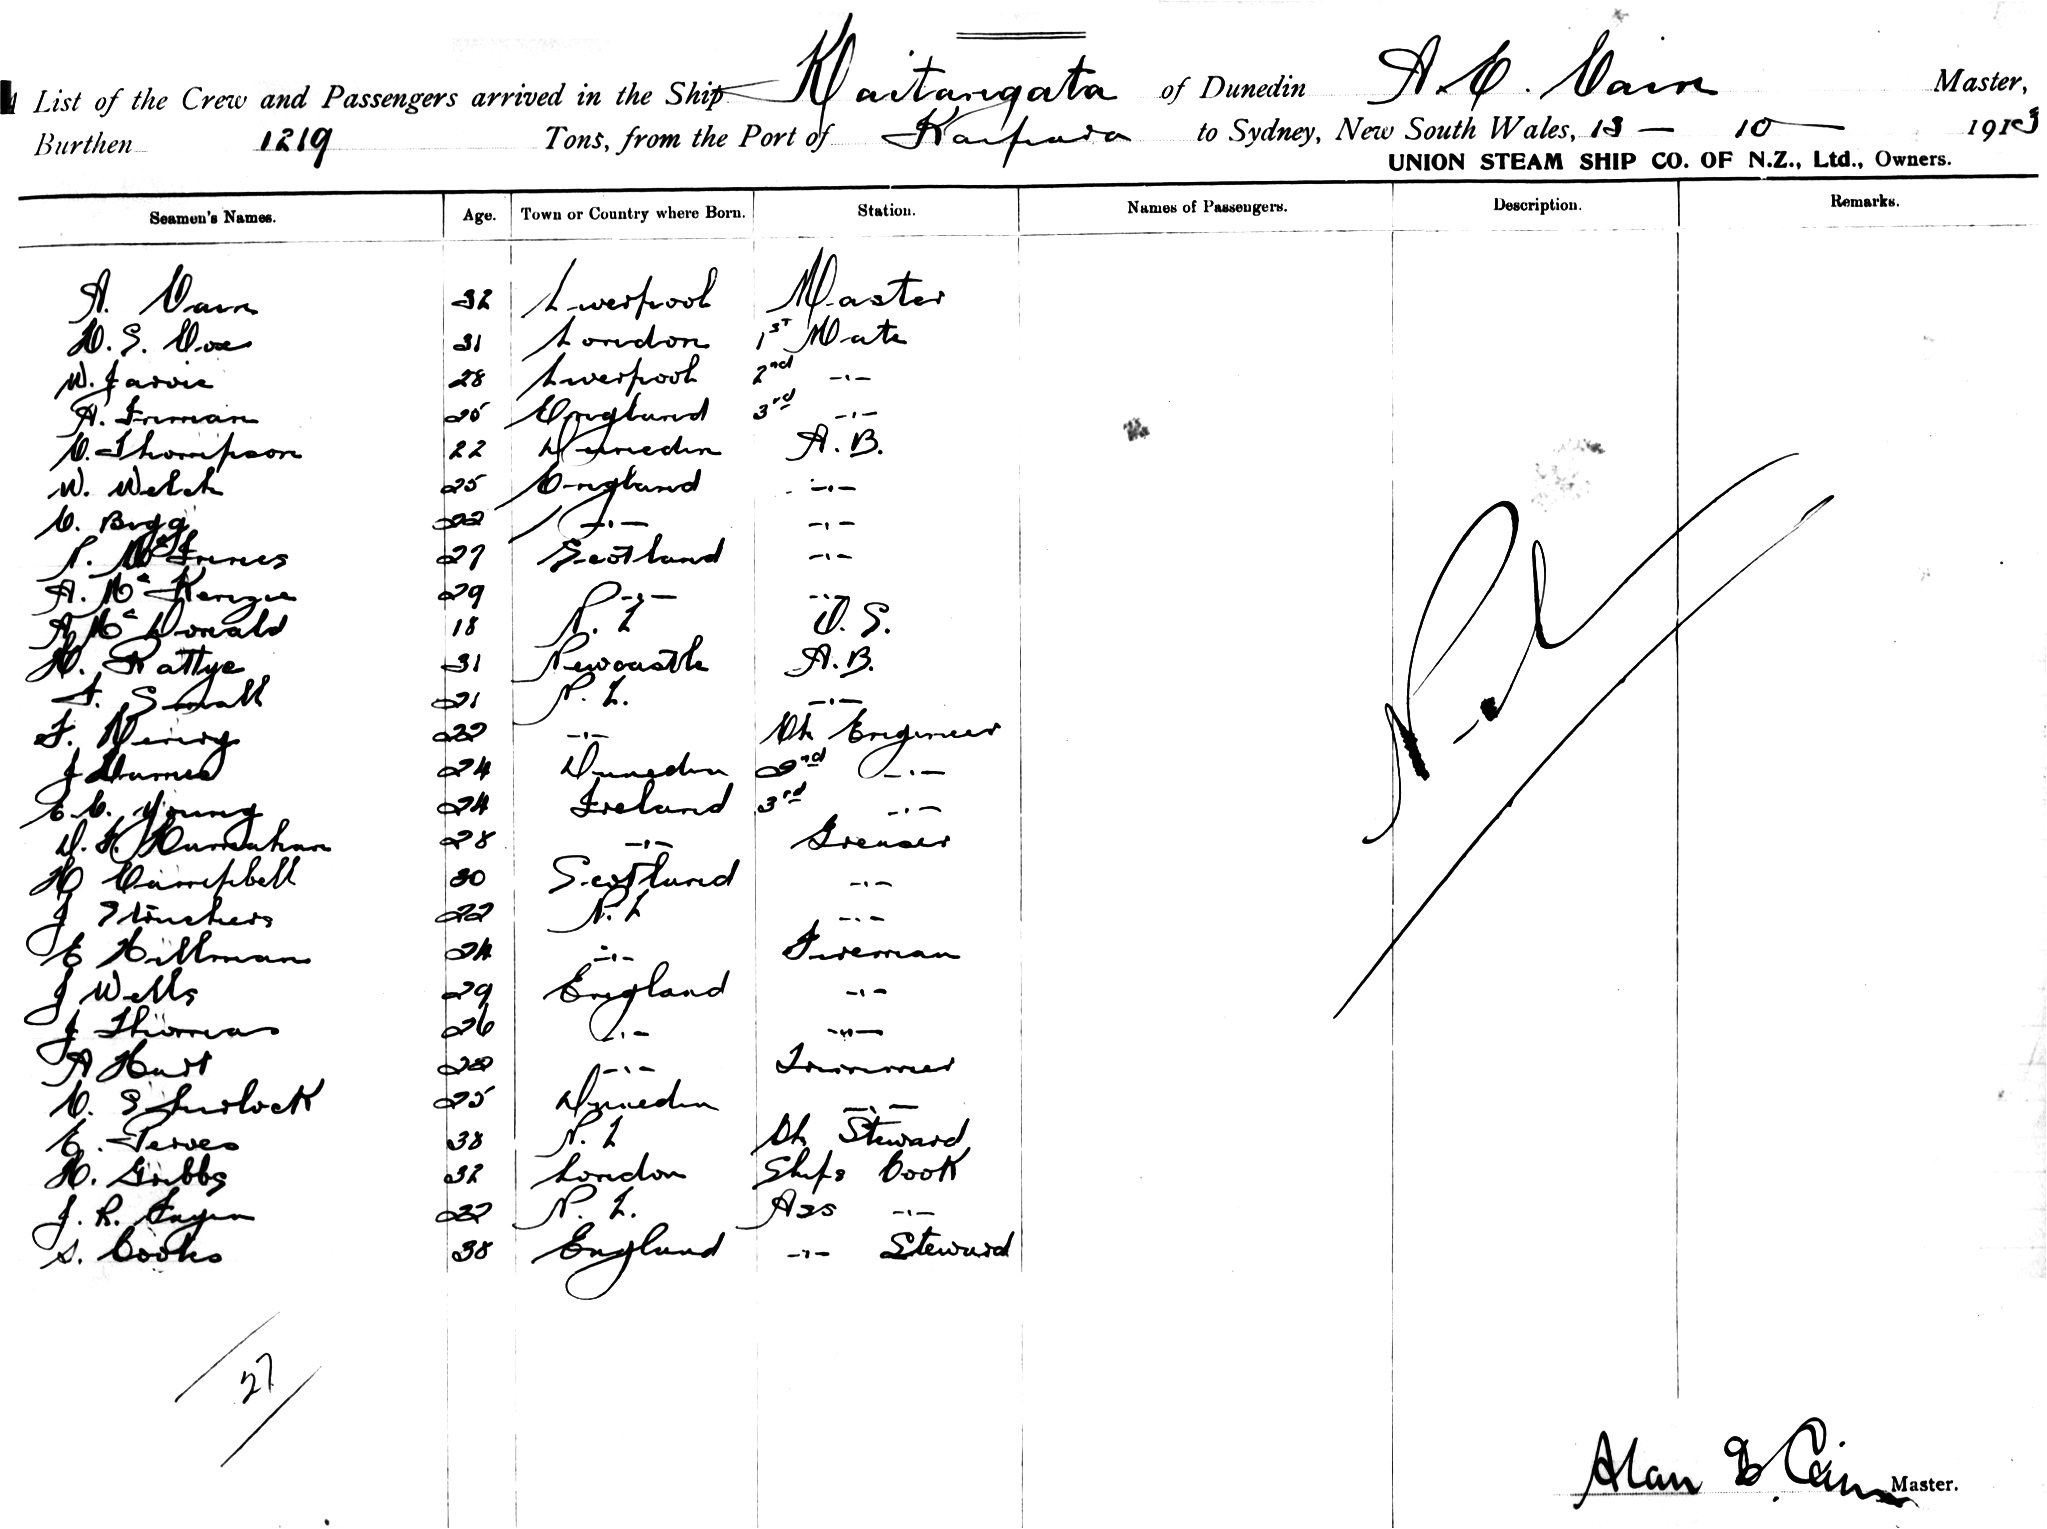 List of the Crew and Passengers arrived in the Ship Kaitangata of Dunedin A. E. Cain Master,
Burthen 1219 Tons, from the Port of Kaipara to Sydney, New South Wales, 13 – 10 – 1913
UNION STEAM SHIP CO. OF N.Z., Ltd., Owners.
Seamen's Names. Age. Town or Country where Born. Station. Names of Passengers. Description. Remarks.
A. Cain 32 Liverpool Master
H. S. Cox 31 London 1st Mate
W. Jarvie 28 Liverpool 2nd -"-
A. Inman 25 England 3rd -"-
C. Thompson 22 Dunedin A.B.
W. Welch 25 England -"-
C. Bugg 22 -"- -"-
N. McInnes 27 Scotland -"-
A. McKenzie 29 -"- -"-
A McDonald 18 N.Z O.S.
H. Rattye 31 Newcastle A.B.
F. Small 21 N.Z. -"-
F. 22 -"- Ch Engineer
J 24 Dunedin 2nd -"-
E. C. Young 24 Ireland 3rd -"-
D. H. 28 -"- Greaser
H Campbell 30 Scotland -"-
J 22 N.Z -"-
E Hillman 24 -"- Fireman
J Wells 29 England -"-
J Thomas 26 -"- -"-
A Hart 22 -"- Trimmer
C. Spurlock 25 Dunedin -"-
E. 38 N.Z Ch Steward
H. Gribbs 32 London Ships Cook
J. R. Fagan 22 N.Z. Ass -"-
S. Cooks 38 England -"- Steward
Nil
27
Alan E. Cain Master.